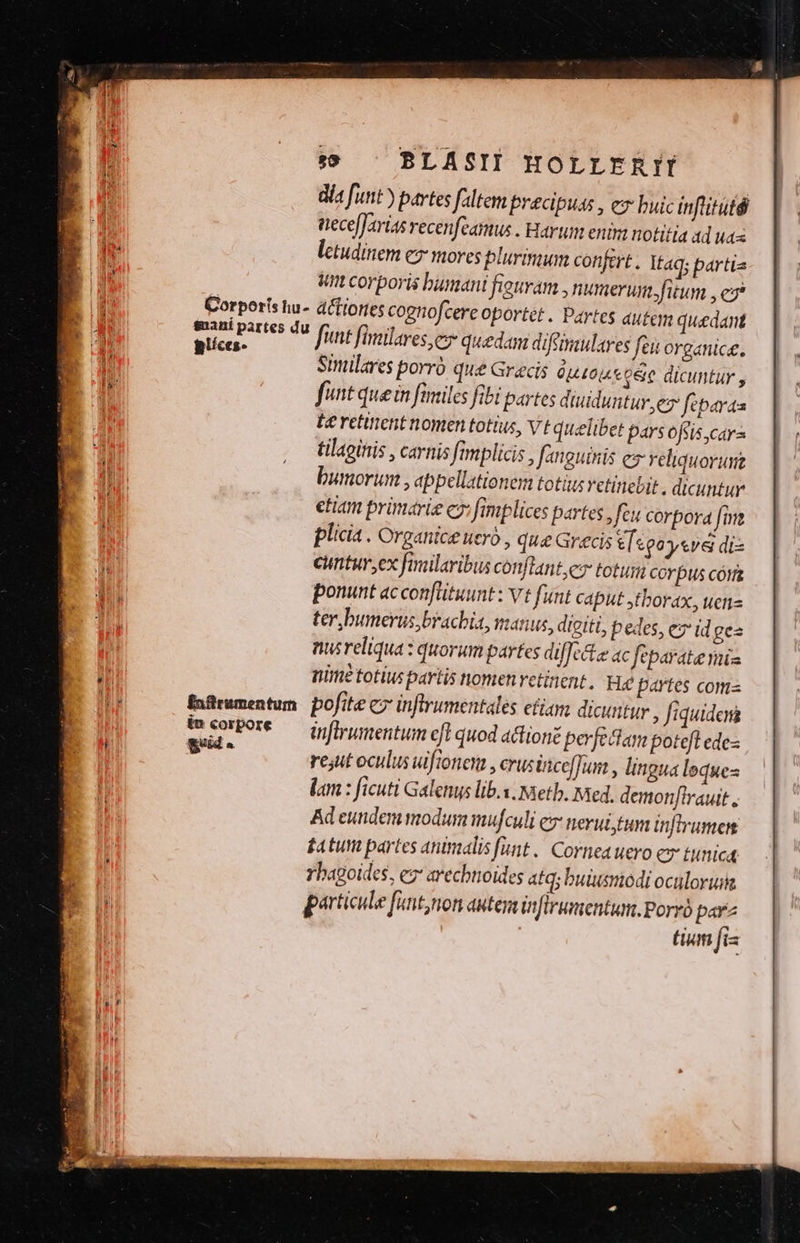 BLASII HOLLERII
dia ſunt) partes ſaltem præcipuas, & huic inſtituto
neceſſarias recenſeamus. Harum enim notitia ad ua=
letudinem & mores plurimum confert. Itaq; partiū=
um corporis humani figuram, numerum, ſitum, &
Corporis hu-
mani partes du
plices.
actiones cognoſcere oportet. Partes autem quædam
ſunt ſimilares, & quædam diſsimulares ſeu organicæ.
Similares porrò quæ Græcis ὁμοιομερῆ dicuntur,
ſunt quæ in ſimiles ſibi partes diuiduntur, & ſepara=
tæ retinent nomen totius, Vt quælibet pars oſsis, car=
tilaginis, carnis ſimplicis, ſanguinis & reliquorum
humorum, appellationem totius retinebit. dicuntur
etiam primariæ & ſimplices partes, ſeu corpora ſim=
plicia. Organicæ uerò, quæ Græcis di=
cuntur, ex ſimilaribus conſtant, & totum corpus com=
ponunt ac conſtituunt: Vt ſunt caput, thorax, uen=
ter, humerus, brachia, manus, digiti, pedes, & id ge=
nus reliqua: quorum partes diſſectæ ac ſeparatæ mi=
nimè totius partis nomen retinent. Hæ partes com=
Inſtrumentum
in corpore
quid.
poſitæ & inſtrumentales etiam dicuntur, ſiquidem
inſtrumentum eſt quod actionē perfectam poteſt ede=
re, ut oculus uiſionem, crus inceſſum, lingua loque=
lam: ſicuti Galenus lib. 1. Meth. Med. demonſtrauit.
Ad eundem modum muſculi & nerui, tum inſtrumen
tatum partes animalis ſunt. Cornea uero & tunica
rhagoides, & arechnoides atq; huiusmodi oculorum
particulæ ſunt, non autem inſtrumentum. Porrò par=
tium ſi=